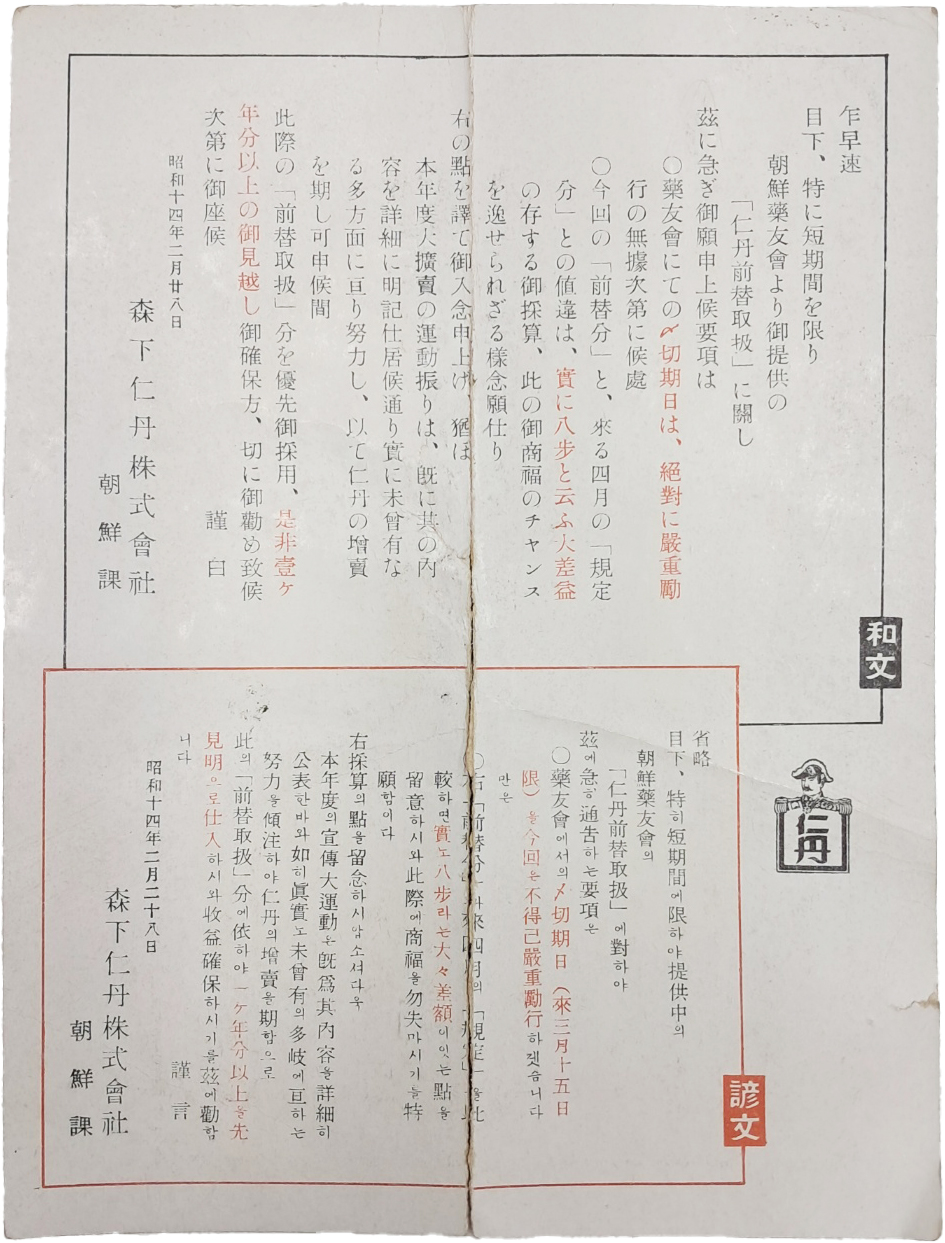 和文
乍早速
目下、特に短期間を限り
朝鮮藥友會より御提供の
「仁丹前替取扱」に關し
茲に急ぎ御願申上候要項は
〇藥友會にての〆切期日は、絕對に嚴重勵
行の無據次第に候處
〇今回の「前替分」と、來る四月の「規定
分」との値違は、實に八步と云ふ大差益
の存する御採算、此の御商福のチャンス
を逸せられざる樣念願仕り
右の點を譯て御入念申上げ、猶ほ
本年度大擴賣の運動振りは、旣に其の內
容を詳細に明記仕居候通り實に未曾有な
る多方面に亘り努力し、以て仁丹の增賣
を期し可申候間
此際の「前替取扱」分を優先御採用、是非壹ヶ
年分以上の御見越し御確保方、切に御勸め致候
次第に御座候
謹白
昭和十四年二月廿八日
森下仁丹株式會社
朝鮮課
仁丹
諺文
省略
目下、特히短期間에限하야提供中의
朝鮮藥友會의
「仁丹前替取扱」에對하야
茲에急히通告하는要項은
〇藥友會에서의〆切期日(來三月十五日
限)을今回은不得己嚴重勵行하겟습니다
만은
〇右「前替分」 來四月의「規定 」을比
較하면實로八步라는大々差額이잇는點을
留意하시와此際에商福을勿失마시기를特
願함이다
右採算의點을留念하시압소셔다욱
本年度의宣傳大運動은旣爲其內容을詳細히
公表한바와如히眞實로未曾有의多岐에亘하는
努力을傾注하야仁丹의增賣을期함으로
此의「前替取扱」分에依하야一ヶ年分以上을先
見明으로仕入하시와收益確保하시기를茲에勸함
니다
謹言
昭和十四年二月二十八日
森下仁丹株式會社
朝鮮課